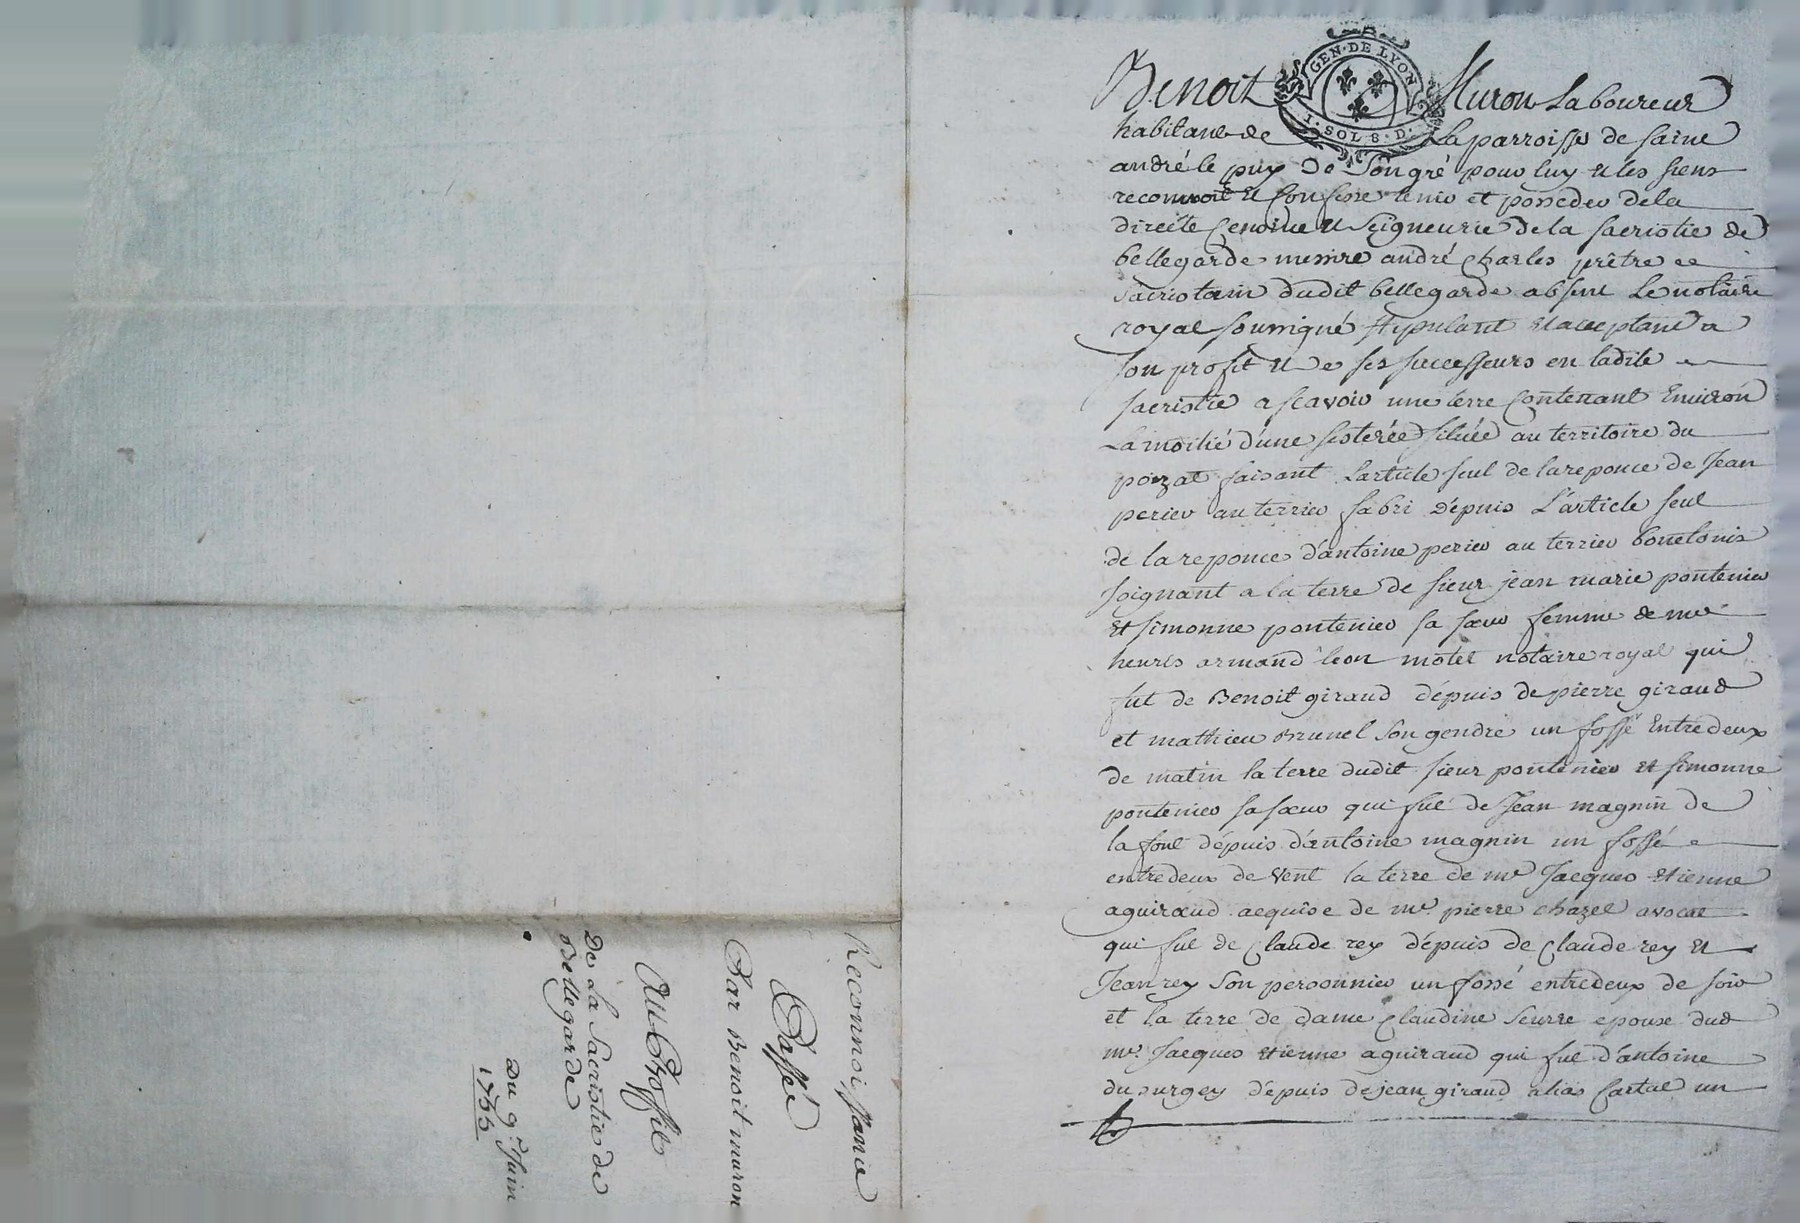 Benoit Muron Laboureur
GEN·DE LYON
I·SOL 8·D·
habitant de La parroisse de saint
andré le puy De Son gré pour luy et les siens
reconnoit et Confesse tenir et posseder de la
directe Censive et Seigneurie de la sacristie de
bellegarde messire andré Charles prêtre et
sacristain dudit bellegarde absent Le notaire
royal soussigné stipulant et acceptant a
son profit et de ses successeurs en ladite
sacristie a scavoir une terre Contenant Environ
La moitié d'une sesterée située au territoire du
poizat faisant L'article seul de la reponce de Jean
perier au terrier fabri dépuis L'article seul
de la reponce d'antoine perier au terrier
joignant a la terre de sieur jean marie pontenier
et simonne pontenier sa sœur femme de me
henris armand leon motet notaire royal qui
fut de Benoit giraud dépuis de pierre giraud
et mathieu Brunel Son gendre un fossé Entredeux
de matin la terre dudit sieur pontenier et simonne
pontenier sa sœur qui fut de Jean magnin de
la font dépuis d'antoine magnin un fossé
entredeux de Vent la terre de me Jacques Etienne
aguiraud acquise de me pierre chazel avocat
qui fut de Claude rey dépuis de Claude rey et
Jean rey Son personnier un fossé entredeux de soir
et la terre de dame Claudine Seurre epouse dud
me Jacques Etienne aguiraud qui fut d'antoine
du surgey dépuis de jean giraud alias Cartal un
Reconnoissance
Passée
Par Benoit muron
Au Proffit
De La Sacristie de
Bellegarde
Du 9e Juin
1755